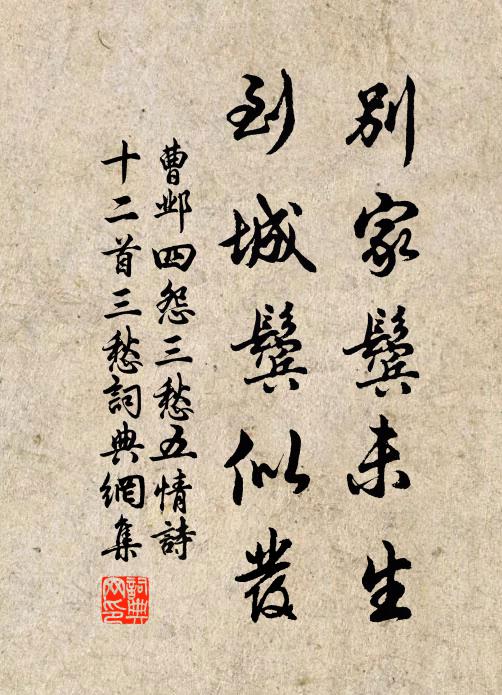 別家鬢未生
到城鬢似發
曹鄴四怨三愁五情詩
十二首三愁詞典網集
詞典
网印